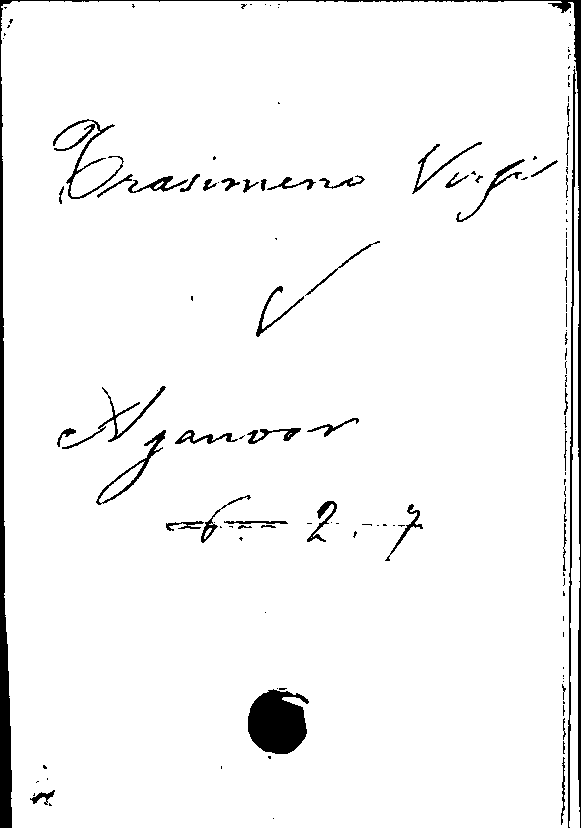 Trasimeno Virgil
Aganoor
6. 2. 7